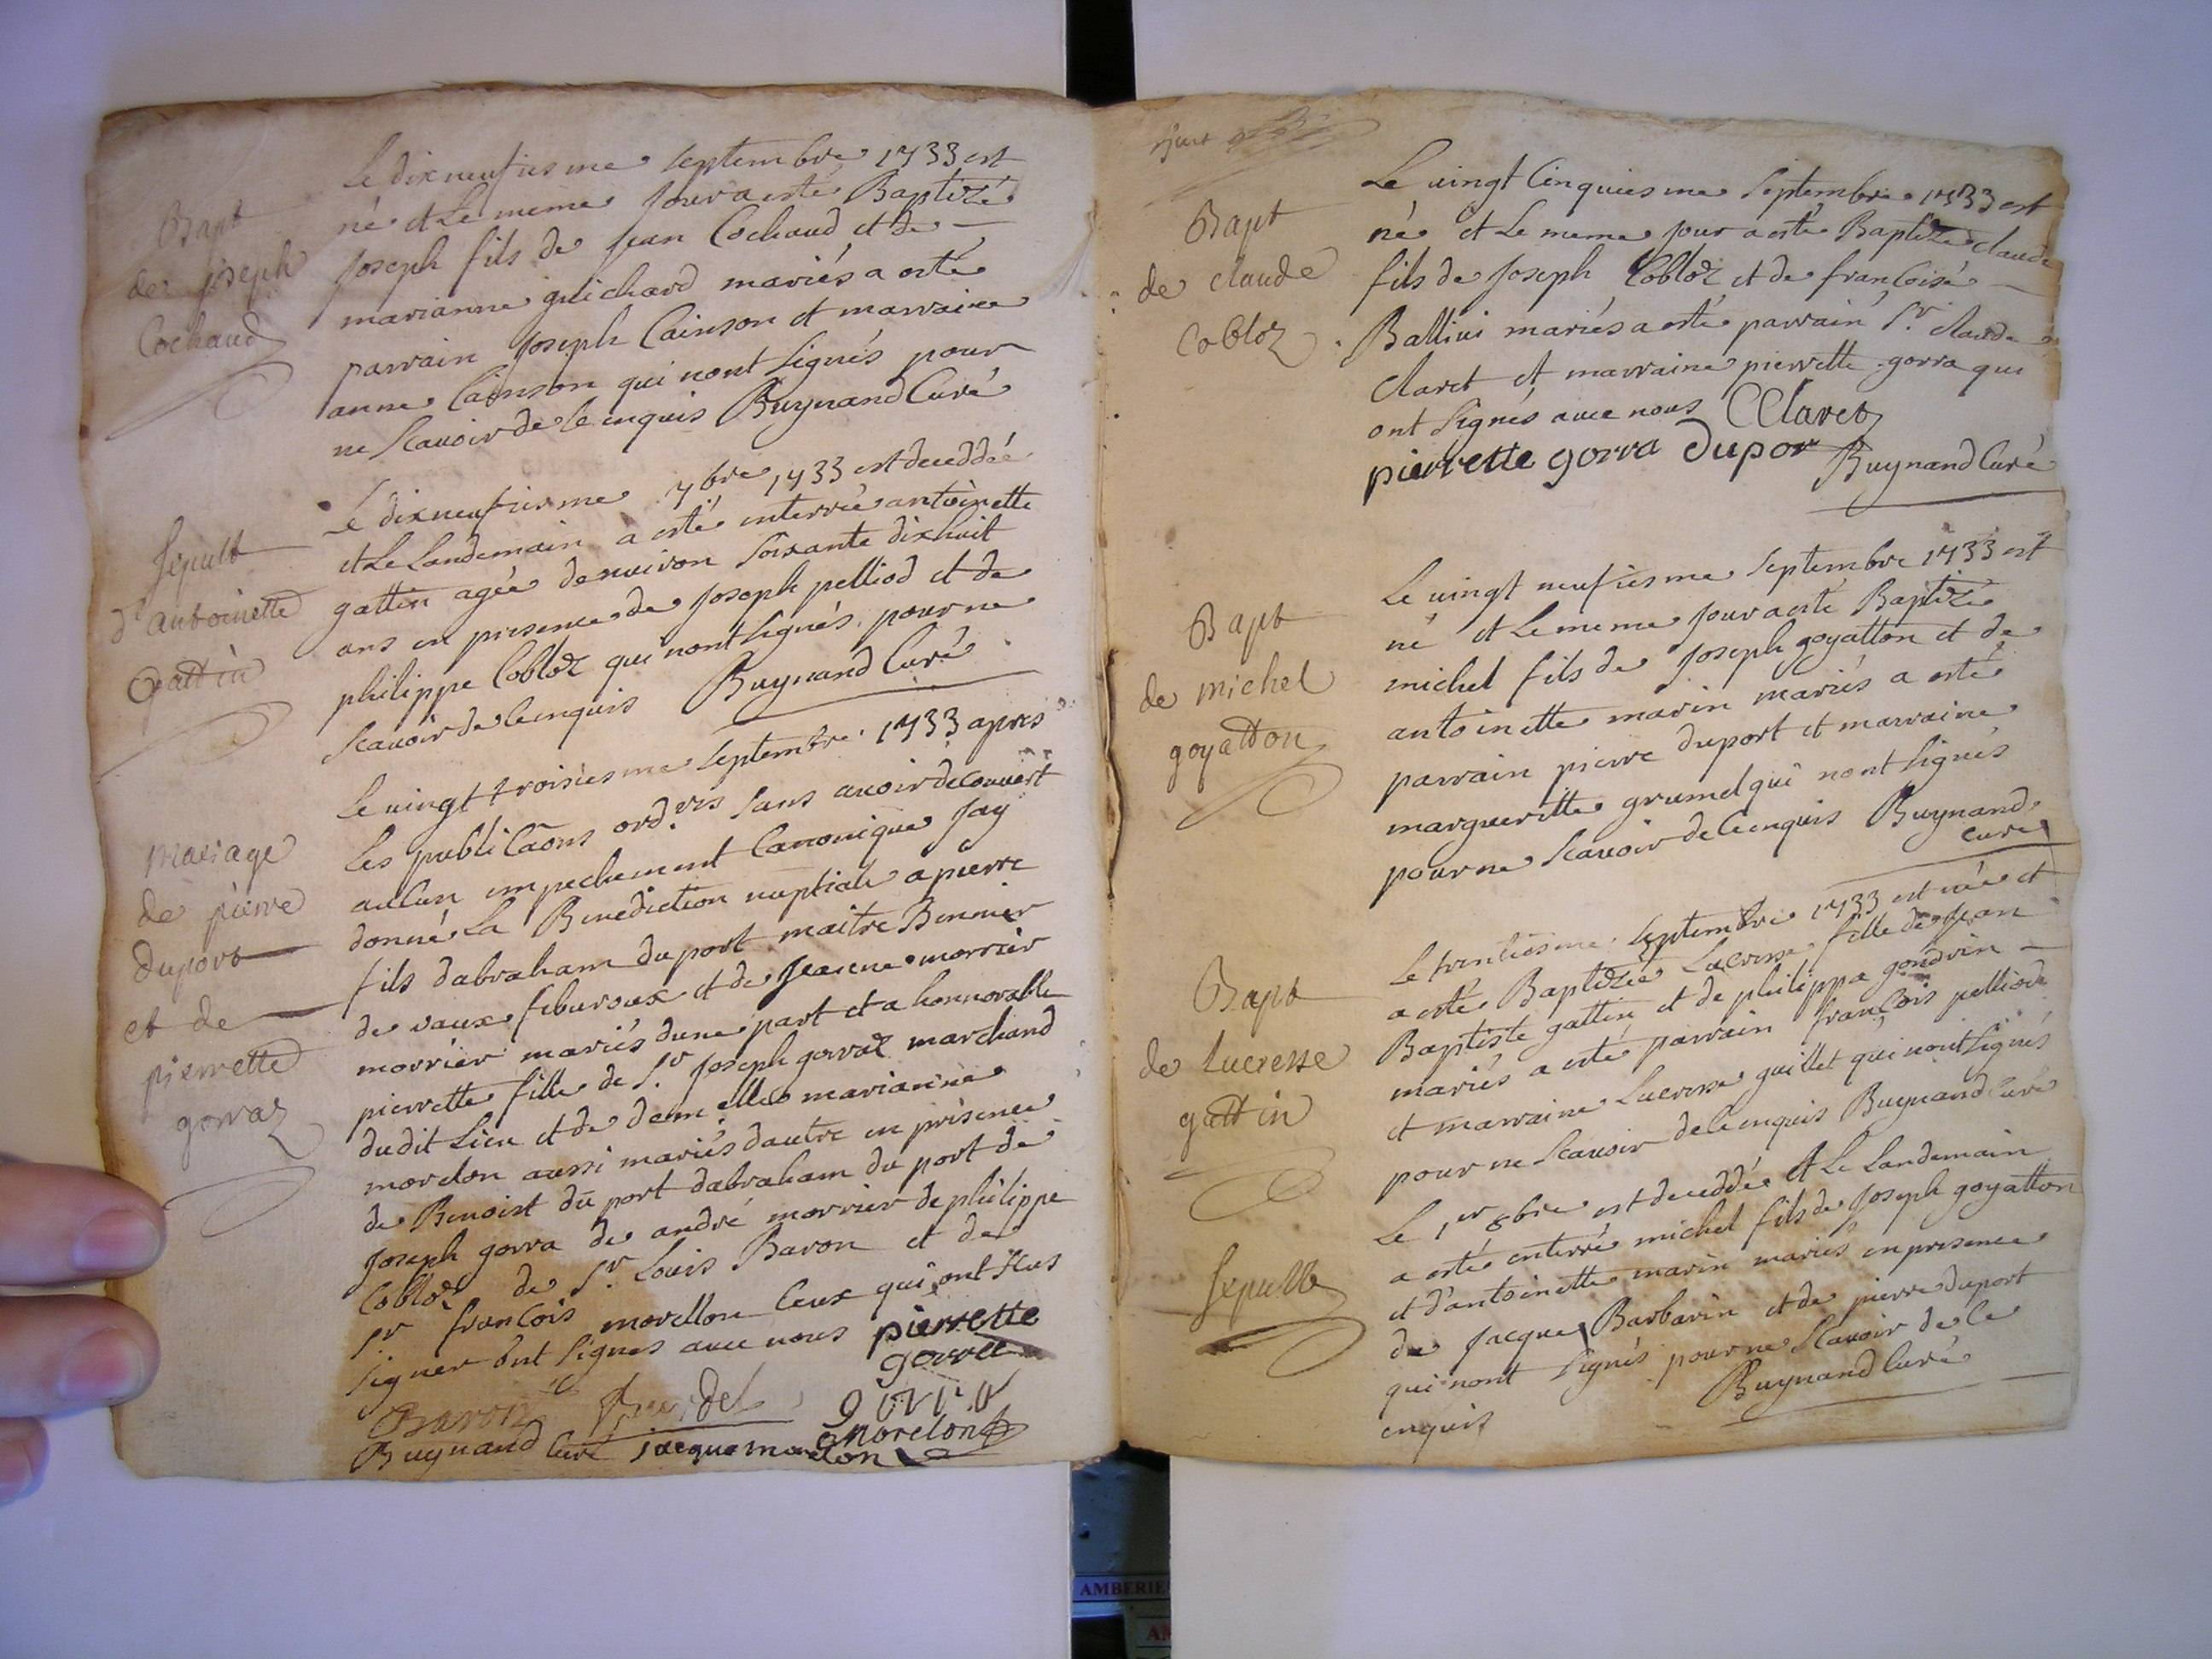 Bapt
de joseph
Cochaud
Le dixneufiesme septembre 1733 est
né et Le meme jour a esté Baptizé
joseph fils de jean Cochaud et de
marianne guichard mariés a esté
parrain joseph Cainson et marraine
anne Cainson qui nont signés pour
ne scavoir de ce enquis Buynand Curé
Sepult
d'antoinette
gattin
Le dixneufiesme 7bre 1733 est deceddée
et Le Landemain a esté enterrée antoinette
gattin agée denviron soixante dixhuit
ans en presence de joseph pelliod et de
philippe Cobloz qui nont signés pour ne
scavoir de ce enquis Buynand Curé
Mariage
de pierre
duport
et de
pierrette
gorraz
Le vingt troisiesme septembre 1733 apres
Les publicaõns ord.res sans avoir decouvert
aucun empechement Canonique jay
donné La Benediction nuptiale a pierre
fils dabraham duport maitre
de vaux febvroux et de jeanne morrier
morrier mariés dune part et a honnorable
pierrette fille de Sr joseph gorraz marchand
dudit Lieu et de demelle marianne
morelon aussi mariés dautre en presence
de Benoist du port dabraham du port de
joseph gorra de andré morrier de philippe
Cobloz de Sr Louis Baron et de
Sr francois morellon Ceux qui ont sceus
signer ont signés avec nous pierrette
gorra
Baron gorra
morelon
Buynand Curé jacque morelon
Bapt
de claude
Cobloz
Le vingt cinquiesme septembre 1733 est
né et Le meme jour a esté Baptizé claude
fils de joseph Cobloz et de francoise
Ballivi mariés a esté parrain Sr claude
Claret et marraine pierrette gorra qui
ont signés avec nous CClaret
pierrette gorra dupor
Buynand Curé
Bapt
de michel
goyatton
Le vingt neufiesme septembre 1733 est
né et Le meme jour a esté Baptizé
michel fils de joseph goyatton et de
antoinette marin mariés a esté
parrain pierre duport et marraine
margueritte grumel qui nont signés
pour ne scavoir de ce enquis Buynand
curé
Bapt
de Lucresse
gattin
Le trentiesme septembre 1733 est née et
a esté Baptizée Lucresse fille de jean
Baptiste gattin et de philippa gondrin
mariés a esté parrain francois pelliod
et marraine Lucresse guillet qui nont signés
pour ne scavoir de ce enquis Buynand curé
Sepult
Le 1er 8bre est deceddé et Le Landemain
a esté enterré michel fils de joseph goyatton
et d'antoinette marin mariés en presence
de jacque Barbarin et de pierre duport
qui nont signés pour ne scavoir de ce
enquis Buynand Curé
AMBERIE